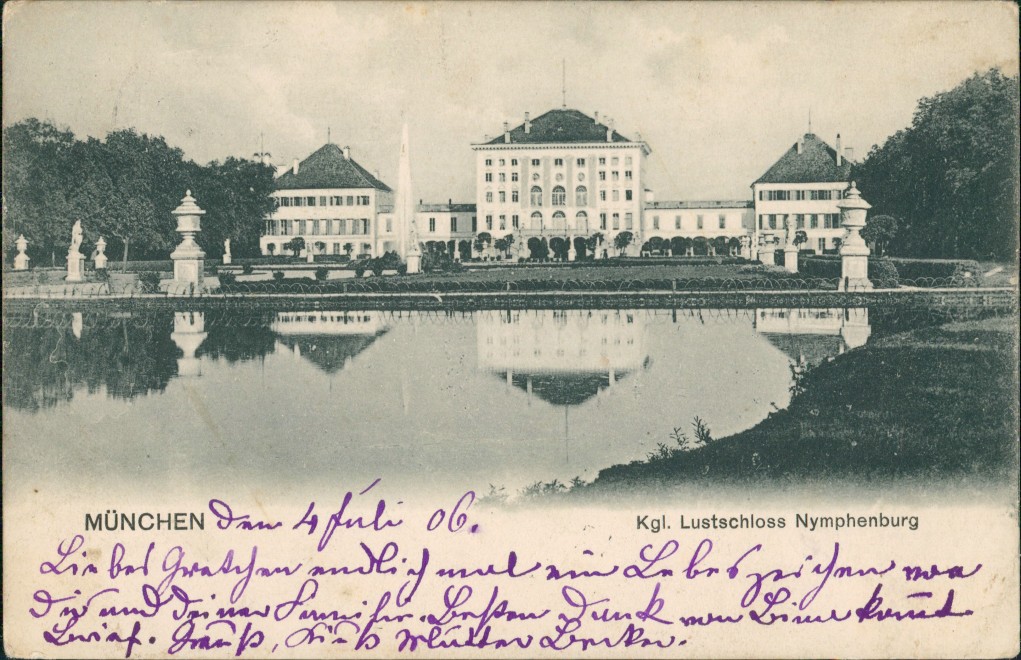 MÜNCHEN den 4 Juli 06.
Kgl. Lustschloss Nymphenburg
Liebes Gretchen endlich mal ein Lebeszeichen von
dir und deiner Familie. Besten Dank von Bine kommt
Brief. Gruß, Kuß Mutter Becker.